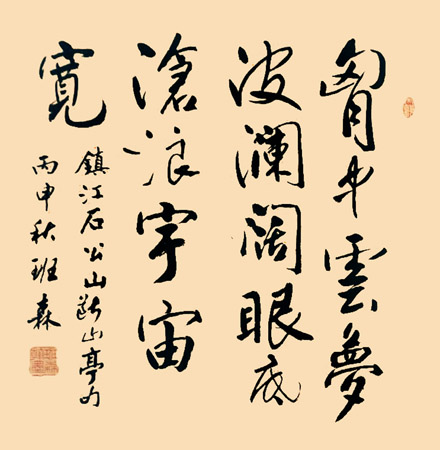 胷中雲夢
波澜阔眼底
滄浪宇宙
寬
鎮江石公山断山亭
丙申秋班森